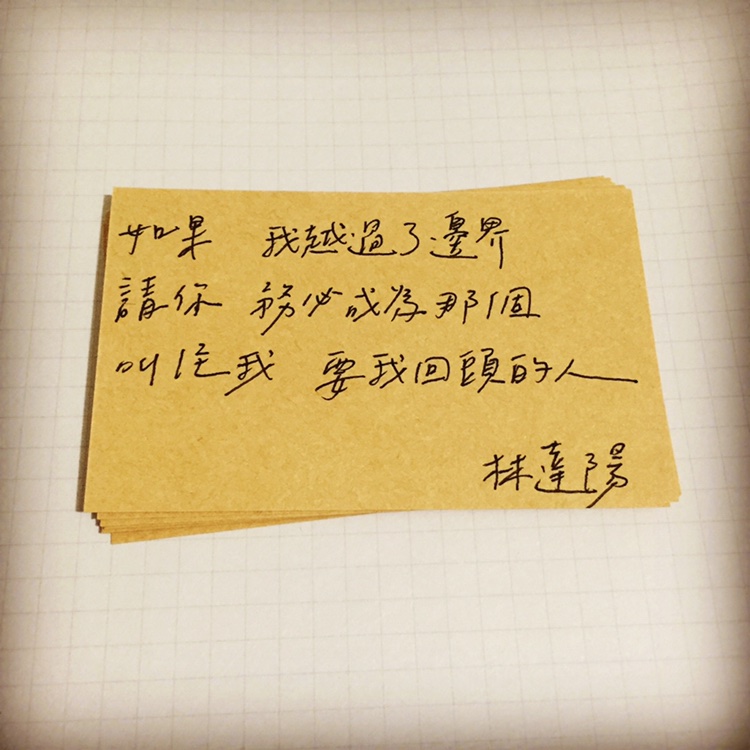 如果 我越過了邊界
請你 務必成為那個
叫住我 要我回頭的人
林達陽